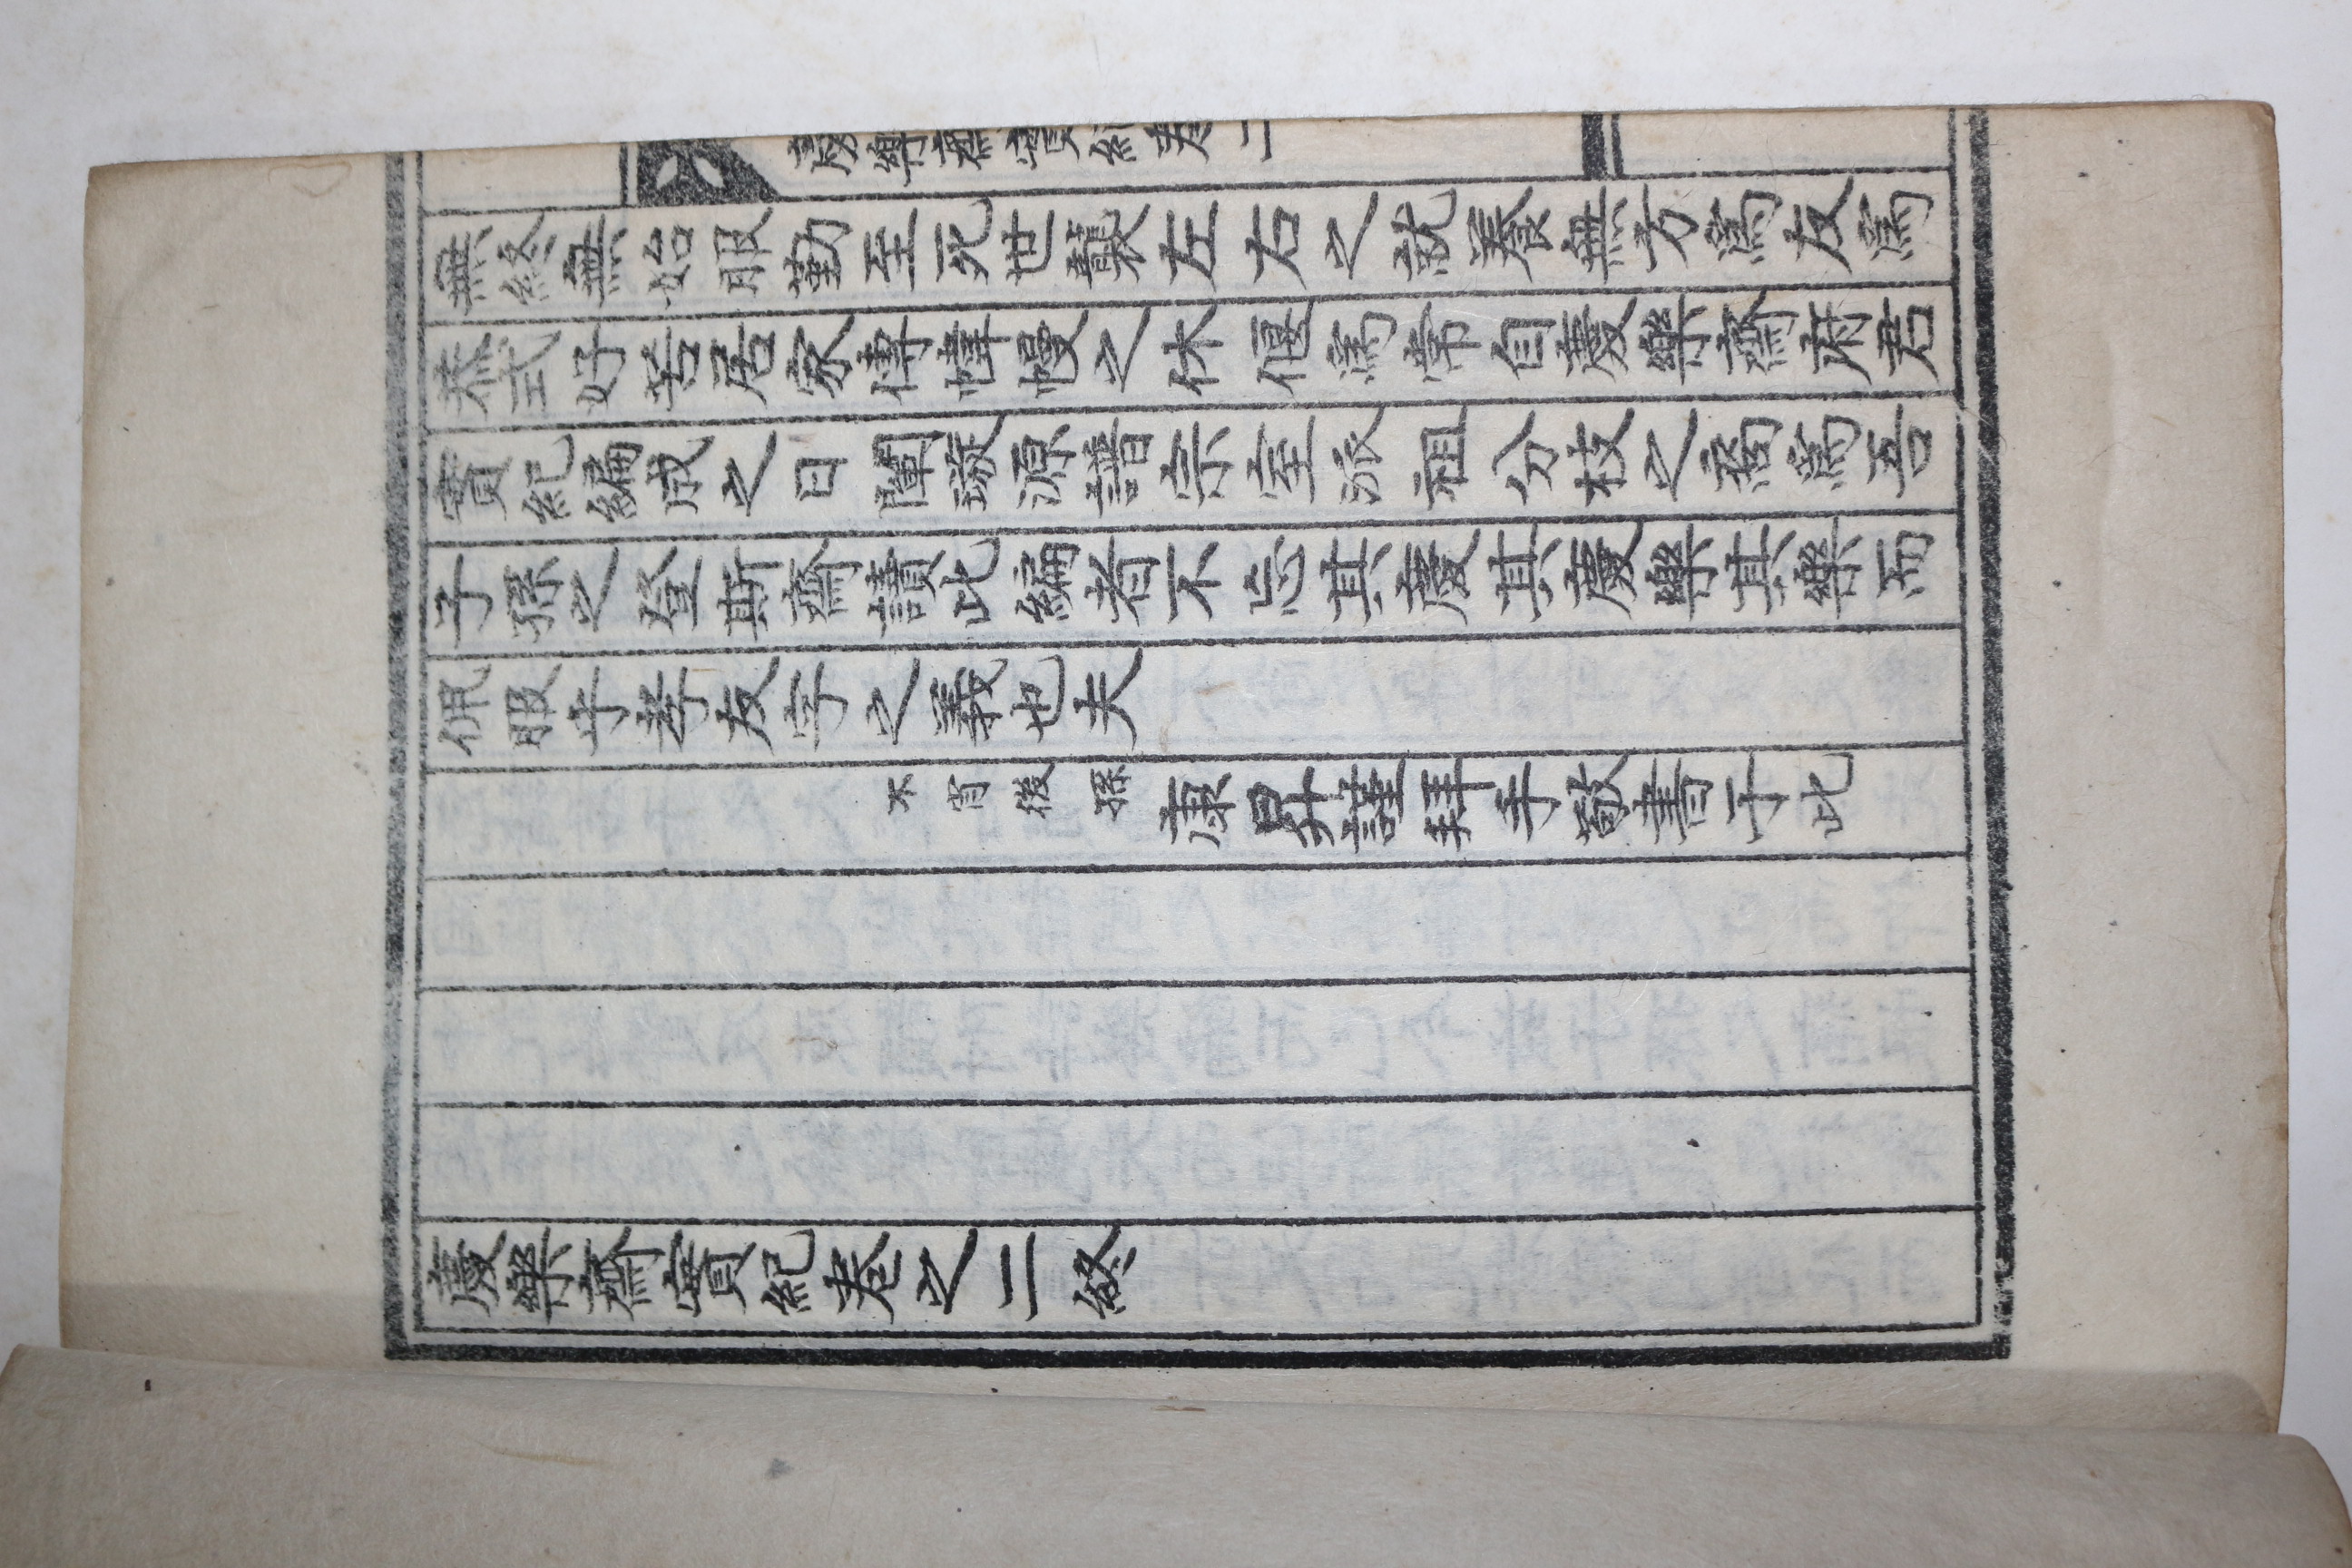 慶樂齋實紀卷二
無終無始服勤至死世襲左右之就養無方焉友焉
恭式好若居家幃幔之休偃焉常自慶樂齋府君
實紀編成之日闡璇源譜宗室派祖分枝之焉吾
子孫之登斯齋讀此編者不忘其慶其慶樂其樂而
佩服乎孝友字之義也夫
不肖後孫康昇謹拜手敬書于此
慶樂齋實紀卷之二終